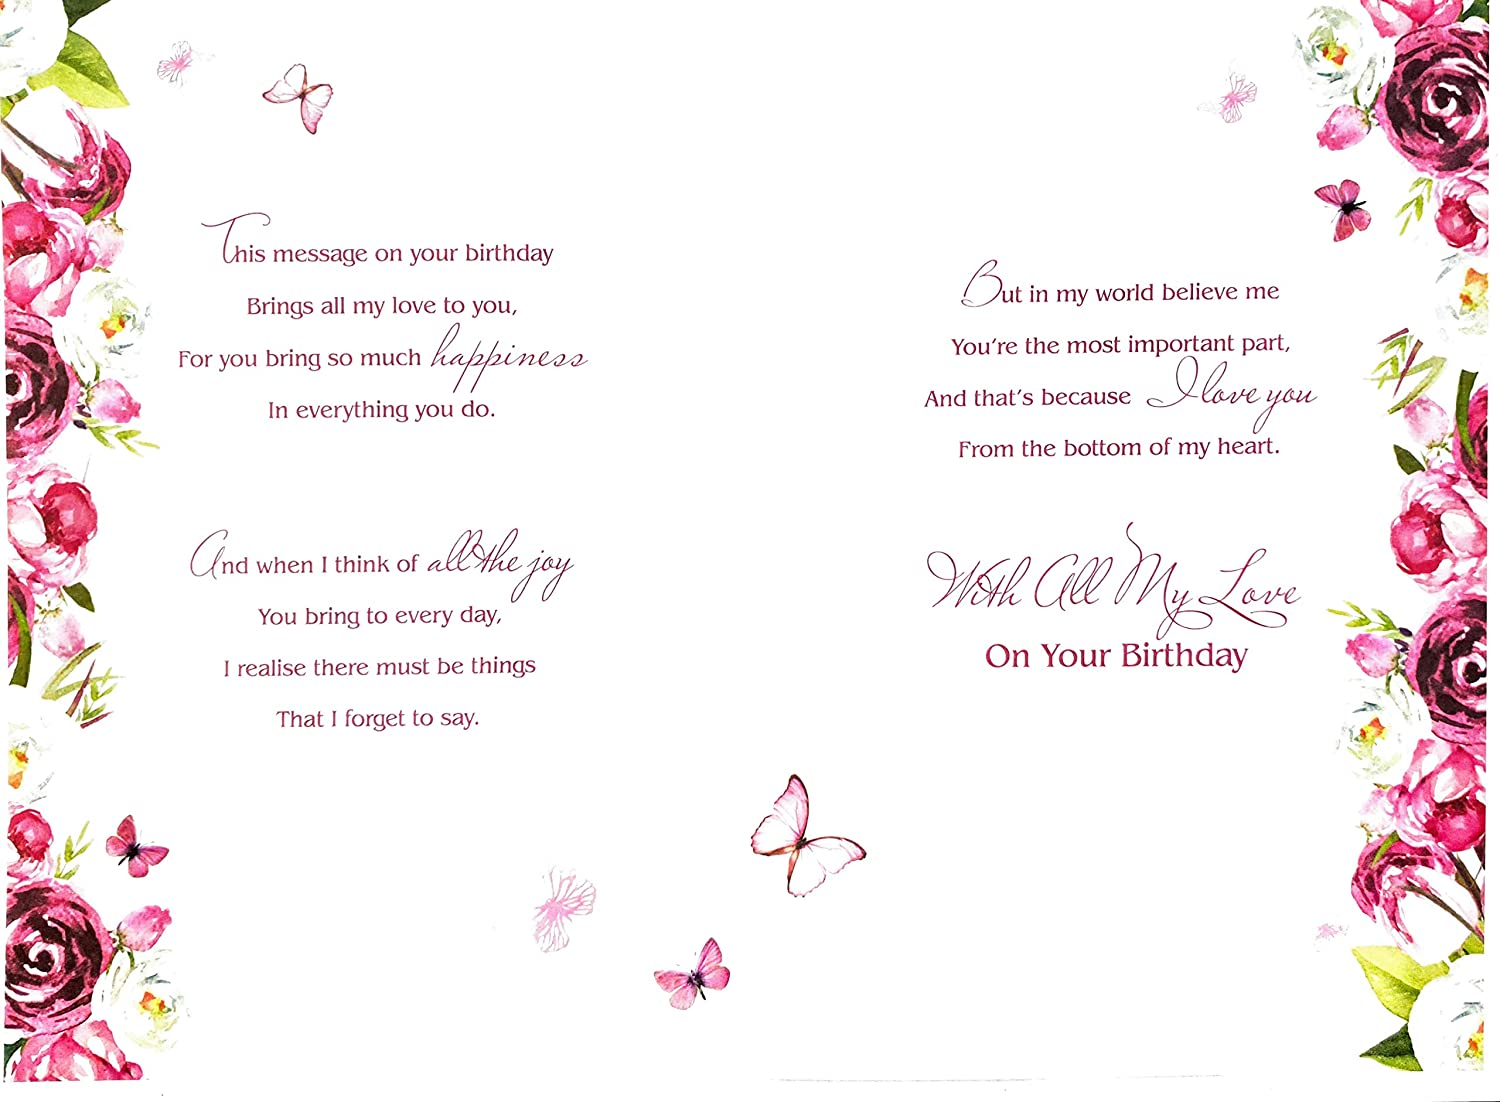 This message on your birthday
Brings all my love to you,
For you bring so much happiness
In everything you do.
And when I think of all the joy
You bring to every day,
I realise there must be things
That I forget to say.
But in my world believe me
You're the most important part,
And that's because I love you
From the bottom of my heart.
With All My Love
On Your Birthday